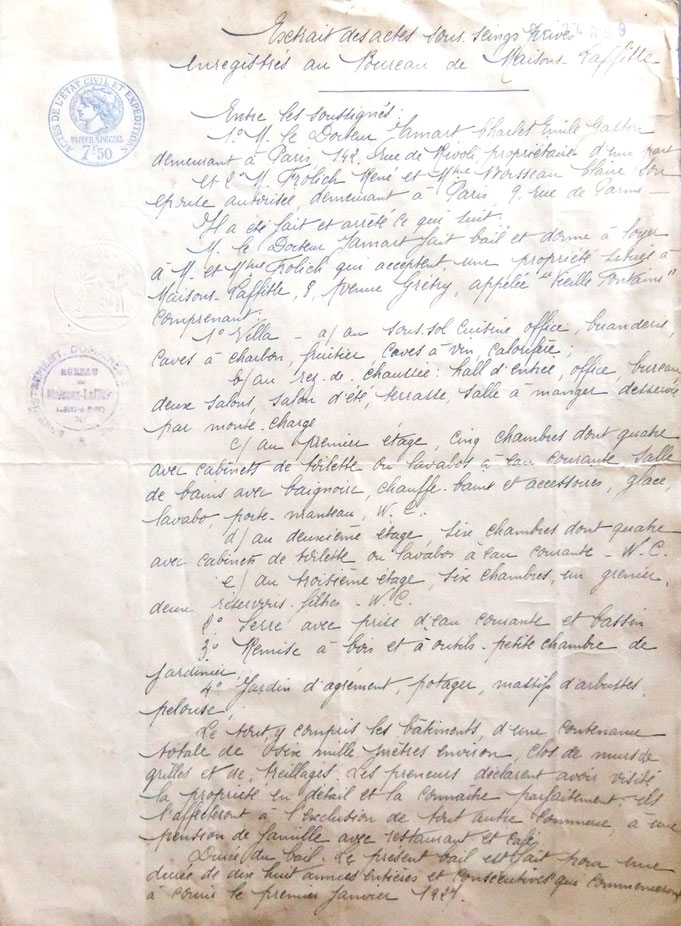 Extrait des actes sous seings Privés
enregistrés au Bureau de Maisons Laffitte
ACTES DE L'ETAT CIVIL ET EXPEDITIONS
PAPIER SPECIAL
7F50
Entre les soussignés:
1º M. le Docteur Jamart Charles Emile Gaston
demeurant à Paris, 142, rue de Rivoli, propriétaire d'une part
et 2º M. Frolich René et Mme Boisseau Claire son
épouse autorisée, demeurant à Paris, 9, rue de Parme
Il a été fait et arrêté ce qui suit.
M. le Docteur Jamart fait bail et donne à loyer
à M. et Mme Frolich qui acceptent, une propriété située à
Maisons-Laffitte, 8, Avenue Grétry, appelée "la Vieille Fontaine"
comprenant.
1º Villa - a/ au sous-sol cuisine office, buanderie,
caves à charbon, fruitier, caves à vin, calorifère;
b/ au rez-de-chaussée: hall d'entrée, office bureau,
BUREAU
Maisons-Laffitte
deux salons, salon d'été, terrasse, salle à manger desservie
par monte-charge
c/ au premier étage, cinq chambres dont quatre
avec cabinets de toilette ou lavabos à eau courante salle
de bains avec baignoire, chauffe-bains et accessoires, glace,
lavabo, porte-manteau, W.C.
d/ au deuxième étage, six chambres dont quatre
avec cabinets de toilette ou lavabos à eau courante - W.C.
e/ au troisième étage, six chambres, un grenier,
deux réservoirs-filtres - W.C.
2º Serre avec prise d'eau courante et bassin
3º Remise à bois et à outils - petite chambre de
jardinier.
4º Jardin d'agrément, potager, massifs d'arbustes,
pelouse;
Le tout, y compris les bâtiments, d'une contenance
totale de mille mètres environ, clos de murs de
grilles et de treillages. Les preneurs déclarent avoir visité
la propriété en détail et la connaître parfaitement ils
l'affecteront à l'exclusion de tout autre commerce, à une
pension de famille avec restaurant et café
Durée du bail. Le présent bail est fait pour une
durée de dix huit années entières et consécutives qui commenceront
à courir le premier Janvier 1927.